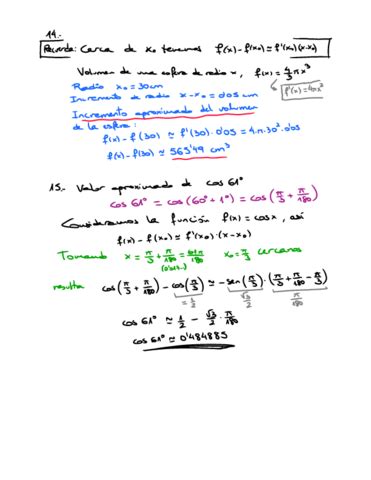 14.-
Recuerda: Cerca de x₀ tenemos f(x)-f(x₀)≃f'(x₀)(x-x₀)
Volumen de una esfera de radio x, f(x)=4/3 πx³
Radio x₀=30cm
f'(x)=4πx²
Incremento de radio x-x₀=0'05 cm
Incremento aproximado del volumen
de la esfera:
f(x)-f(30)≃f'(30)·0'05=4·π·30²·0'05
f(x)-f(30)≃565'49 cm³
15.- Valor aproximado de cos 61°
cos 61° = cos(60°+1°) = cos(π/3 + π/180)
Consideramos la función f(x)=cosx, así
f(x)-f(x₀)≃f'(x₀)·(x-x₀)
Tomando x=π/3+π/180=61π/180 x₀=π/3 cercanos
resulta cos(π/3+π/180)-cos(π/3)≃-sen(π/3)·(π/3+π/180-π/3)
=1/2 √3/2 π/180
cos 61° ≃ 1/2 - √3/2·π/180
cos 61° ≃ 0'484885